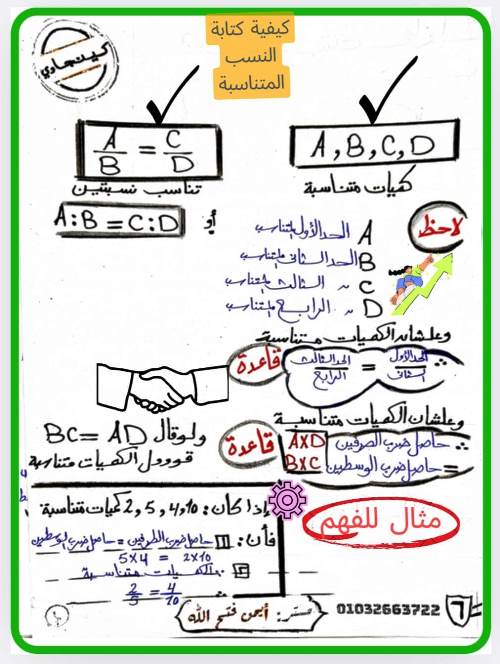 كيفية كتابة
النسب
المتناسبة
A , B , C , D
كميات متناسبة
A/B = C/D
تناسب نسبتين
أو A:B = C:D
لاحظ
A الحد الأول المتناسب
B الحد الثاني المتناسب
C " الثالث المتناسب
D " الرابع المتناسب
وعلشان الكميات متناسبة
قاعدة
∴ الحد الأول / الثاني = الحد الثالث / الرابع
وعلشان الكميات متناسبة
قاعدة
∴ حاصل ضرب الطرفين A×D
= حاصل ضرب الوسطين B×C
ولو قال BC = AD
قووول الكميات متناسبة
مثال للفهم
إذا كان: 2 , 5 , 4 , 10 كميات متناسبة
فأن: 1 حاصل ضرب الطرفين = حاصل ضرب الوسطين
5×4 = 2×10
2 ∴ الكميات متناسبة
∴ 2/5 = 4/10
مستر: أيمن فتح الله
01032663722
٦